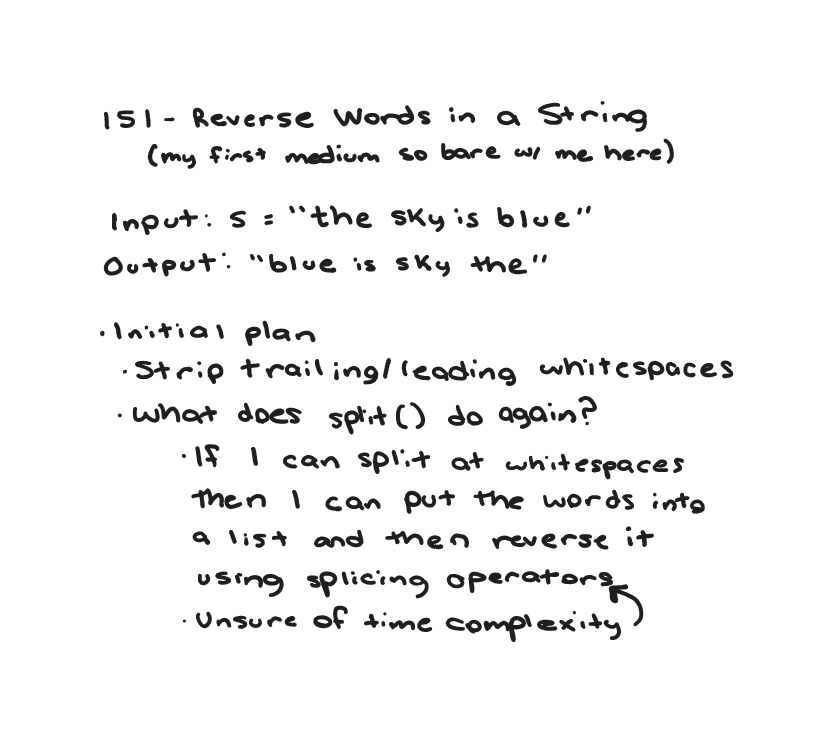 151 - Reverse Words in a String
(my first medium so bare w/ me here)
Input: s = "the sky is blue"
Output: "blue is sky the"
· Initial plan
· Strip trailing/leading whitespaces
· What does split() do again?
· If I can split at whitespaces
then I can put the words into
a list and then reverse it
using splicing operators
· Unsure of time complexity